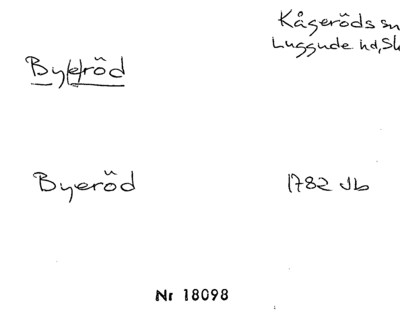 Kågeröds sn
Luggude hd, Sk
By(e)röd
Byeröd
1782 Jb
Nr 18098